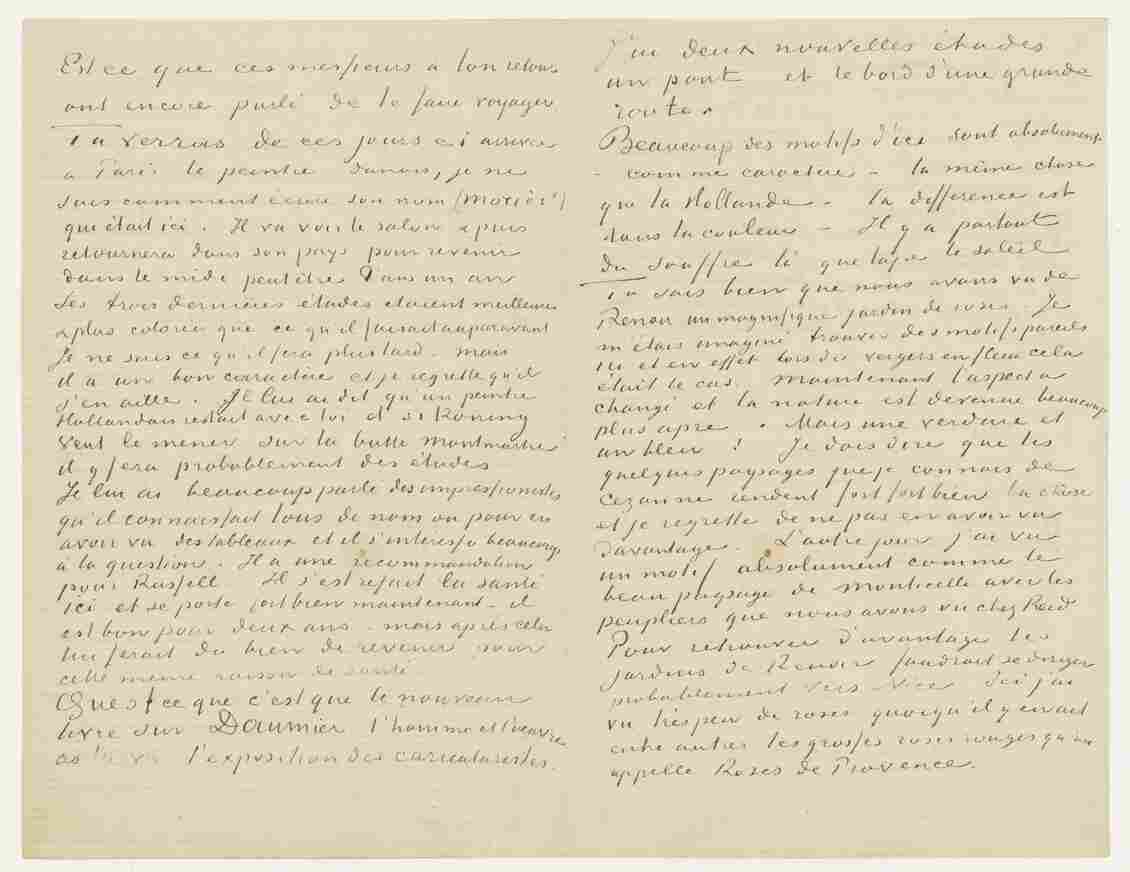 Est ce que ces messieurs a ton retour
ont encore parlé de te faire voyager.
Tu verras de ces jours ci arriver
à Paris le peintre danois, je ne
sais comment écrire son nom (Morier?)
qui était ici. Il va voir le salon & puis
retournera dans son pays pour revenir
dans le midi peutêtre dans un an
Ses trois dernières études etaient meilleures
& plus colorées que ce qu'il faisait auparavant
Je ne sais ce qu'il fera plus tard. mais
il a un bon caractère et je regrette qu'il
s'en aille. Je lui ai dit qu'un peintre
Hollandais restait avec toi et si Koning
veut le mener sur la butte Montmartre
il y fera probablement des études
Je lui ai beaucoup parlé des impressionistes
qu'il connaissait tous de nom ou pour en
avoir vu des tableaux et il s'interesse beaucoup
à la question. Il a une recommandation
pour Russell. Il s'est refait la santé
ici et se porte fort bien maintenant. il
est bon pour deux ans. mais après cela
lui ferait du bien de revenir pour
cette même raison de santé
Quest ce que c'est que le nouveau
livre sur Daumier l'homme et l'oeuvre
as tu vu l'exposition des caricaturistes.
J'ai deux nouvelles études
un pont et le bord d'une grande
route.
Beaucoup des motifs d'ici sont absolument
- comme caractère - la même chose
que la Hollande - la difference est
dans la couleur - Il y a partout
du souffre là que tape le soleil
Tu sais bien que nous avons vu de
Renoir un magnifique jardin de roses. Je
m'étais imaginé trouver des motifs pareils
ici et en effet lors des vergers en fleur cela
était le cas. Maintenant l'aspect a
changé et la nature est devenue beaucoup
plus apre. Mais une verdure et
un bleu! Je dois dire que les
quelques paysages que je connais de
Cezanne rendent fort fort bien la chose
et je regrette de ne pas en avoir vu
davantage. L'autre jour j'ai vu
un motif absolument comme le
beau paysage de Monticelli avec les
peupliers que nous avons vu chez Reid
Pour retrouver d'avantage les
jardins de Renoir faudrait se diriger
probablement vers Nice. Ici j'ai
vu très peu de roses quoiqu'il y en ait
entre autres les grosses roses rouges qu'on
appelle Roses de Provence.